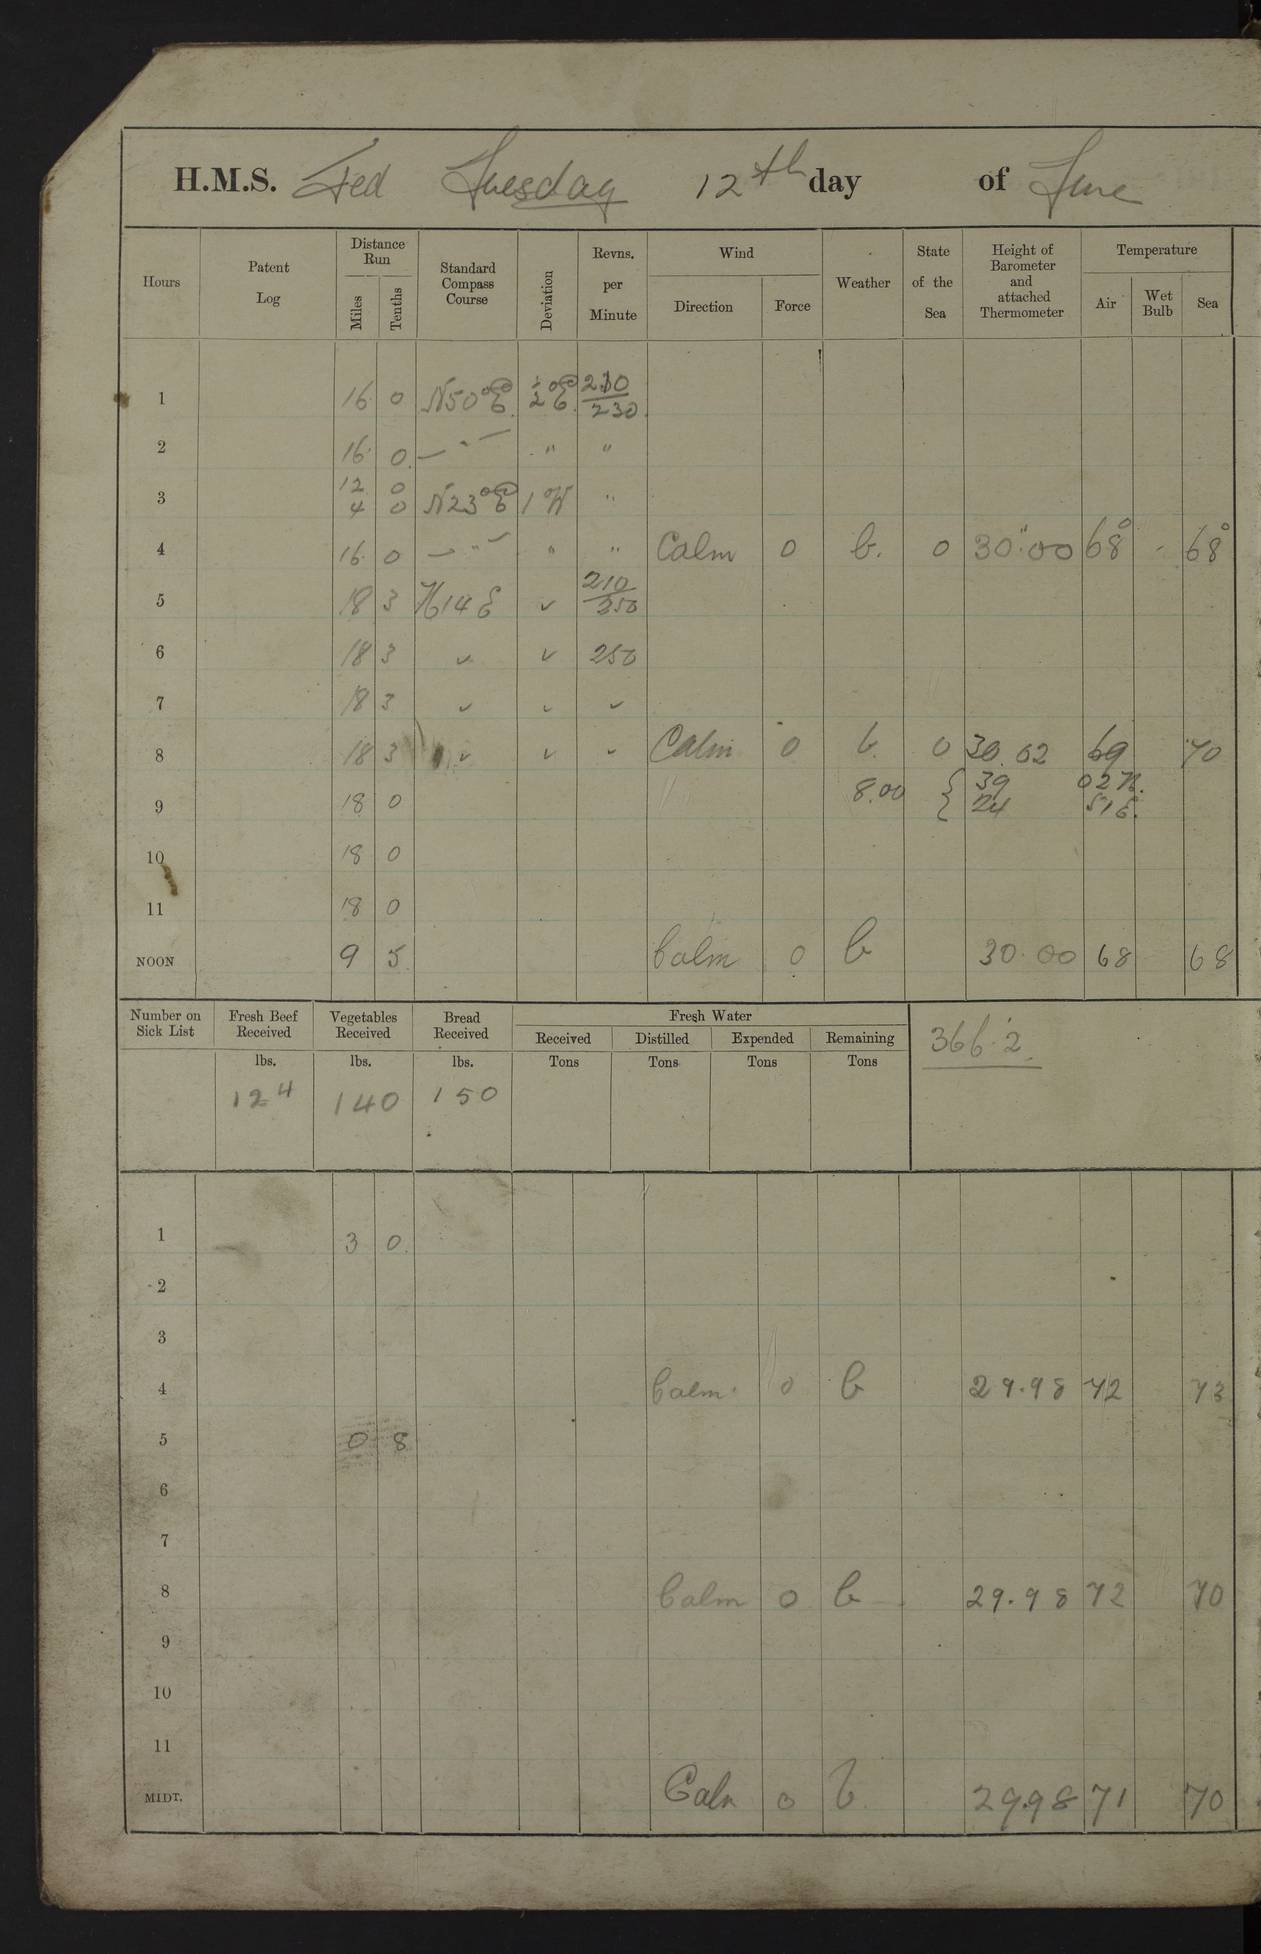 H.M.S. Tuesday 12th day of June
Hours Patent Log Distance Run Miles Tenths Standard Compass Course Deviation Revns. per Minute Wind Direction Force Weather State of the Sea Height of Barometer and attached Thermometer Temperature Air Wet Bulb Sea
1 16 0 N50°E ½°E 210/230
2 16 0 — " — " "
3 12 0 4 0 N23°E 1 W "
4 16 0 — " — " " Calm 0 b. 0 30".00 68° - 68°
5 18 3 N14E ✓ 210/250
6 18 3 ✓ ✓ 250
7 18 3 ✓ ✓ ✓
8 18 3 ✓ ✓ ✓ Calm 0 b. 0 30.02 69 70
9 18 0 8.00 { 39 02 N.
24 51 E.
10 18 0
11 18 0
NOON 9 5 Calm 0 b 30.00 68 68
Number on Sick List Fresh Beef Received Vegetables Received Bread Received Fresh Water Received Distilled Expended Remaining 366.2
lbs. lbs. lbs. Tons Tons Tons Tons
124 140 150
1 3 0
2
3
4 Calm 0 b 29.98 72 73
5 0 8
6
7
8 Calm 0 b 29.98 72 70
9
10
11
MIDT. Calm 0 b. 29.98 71 70